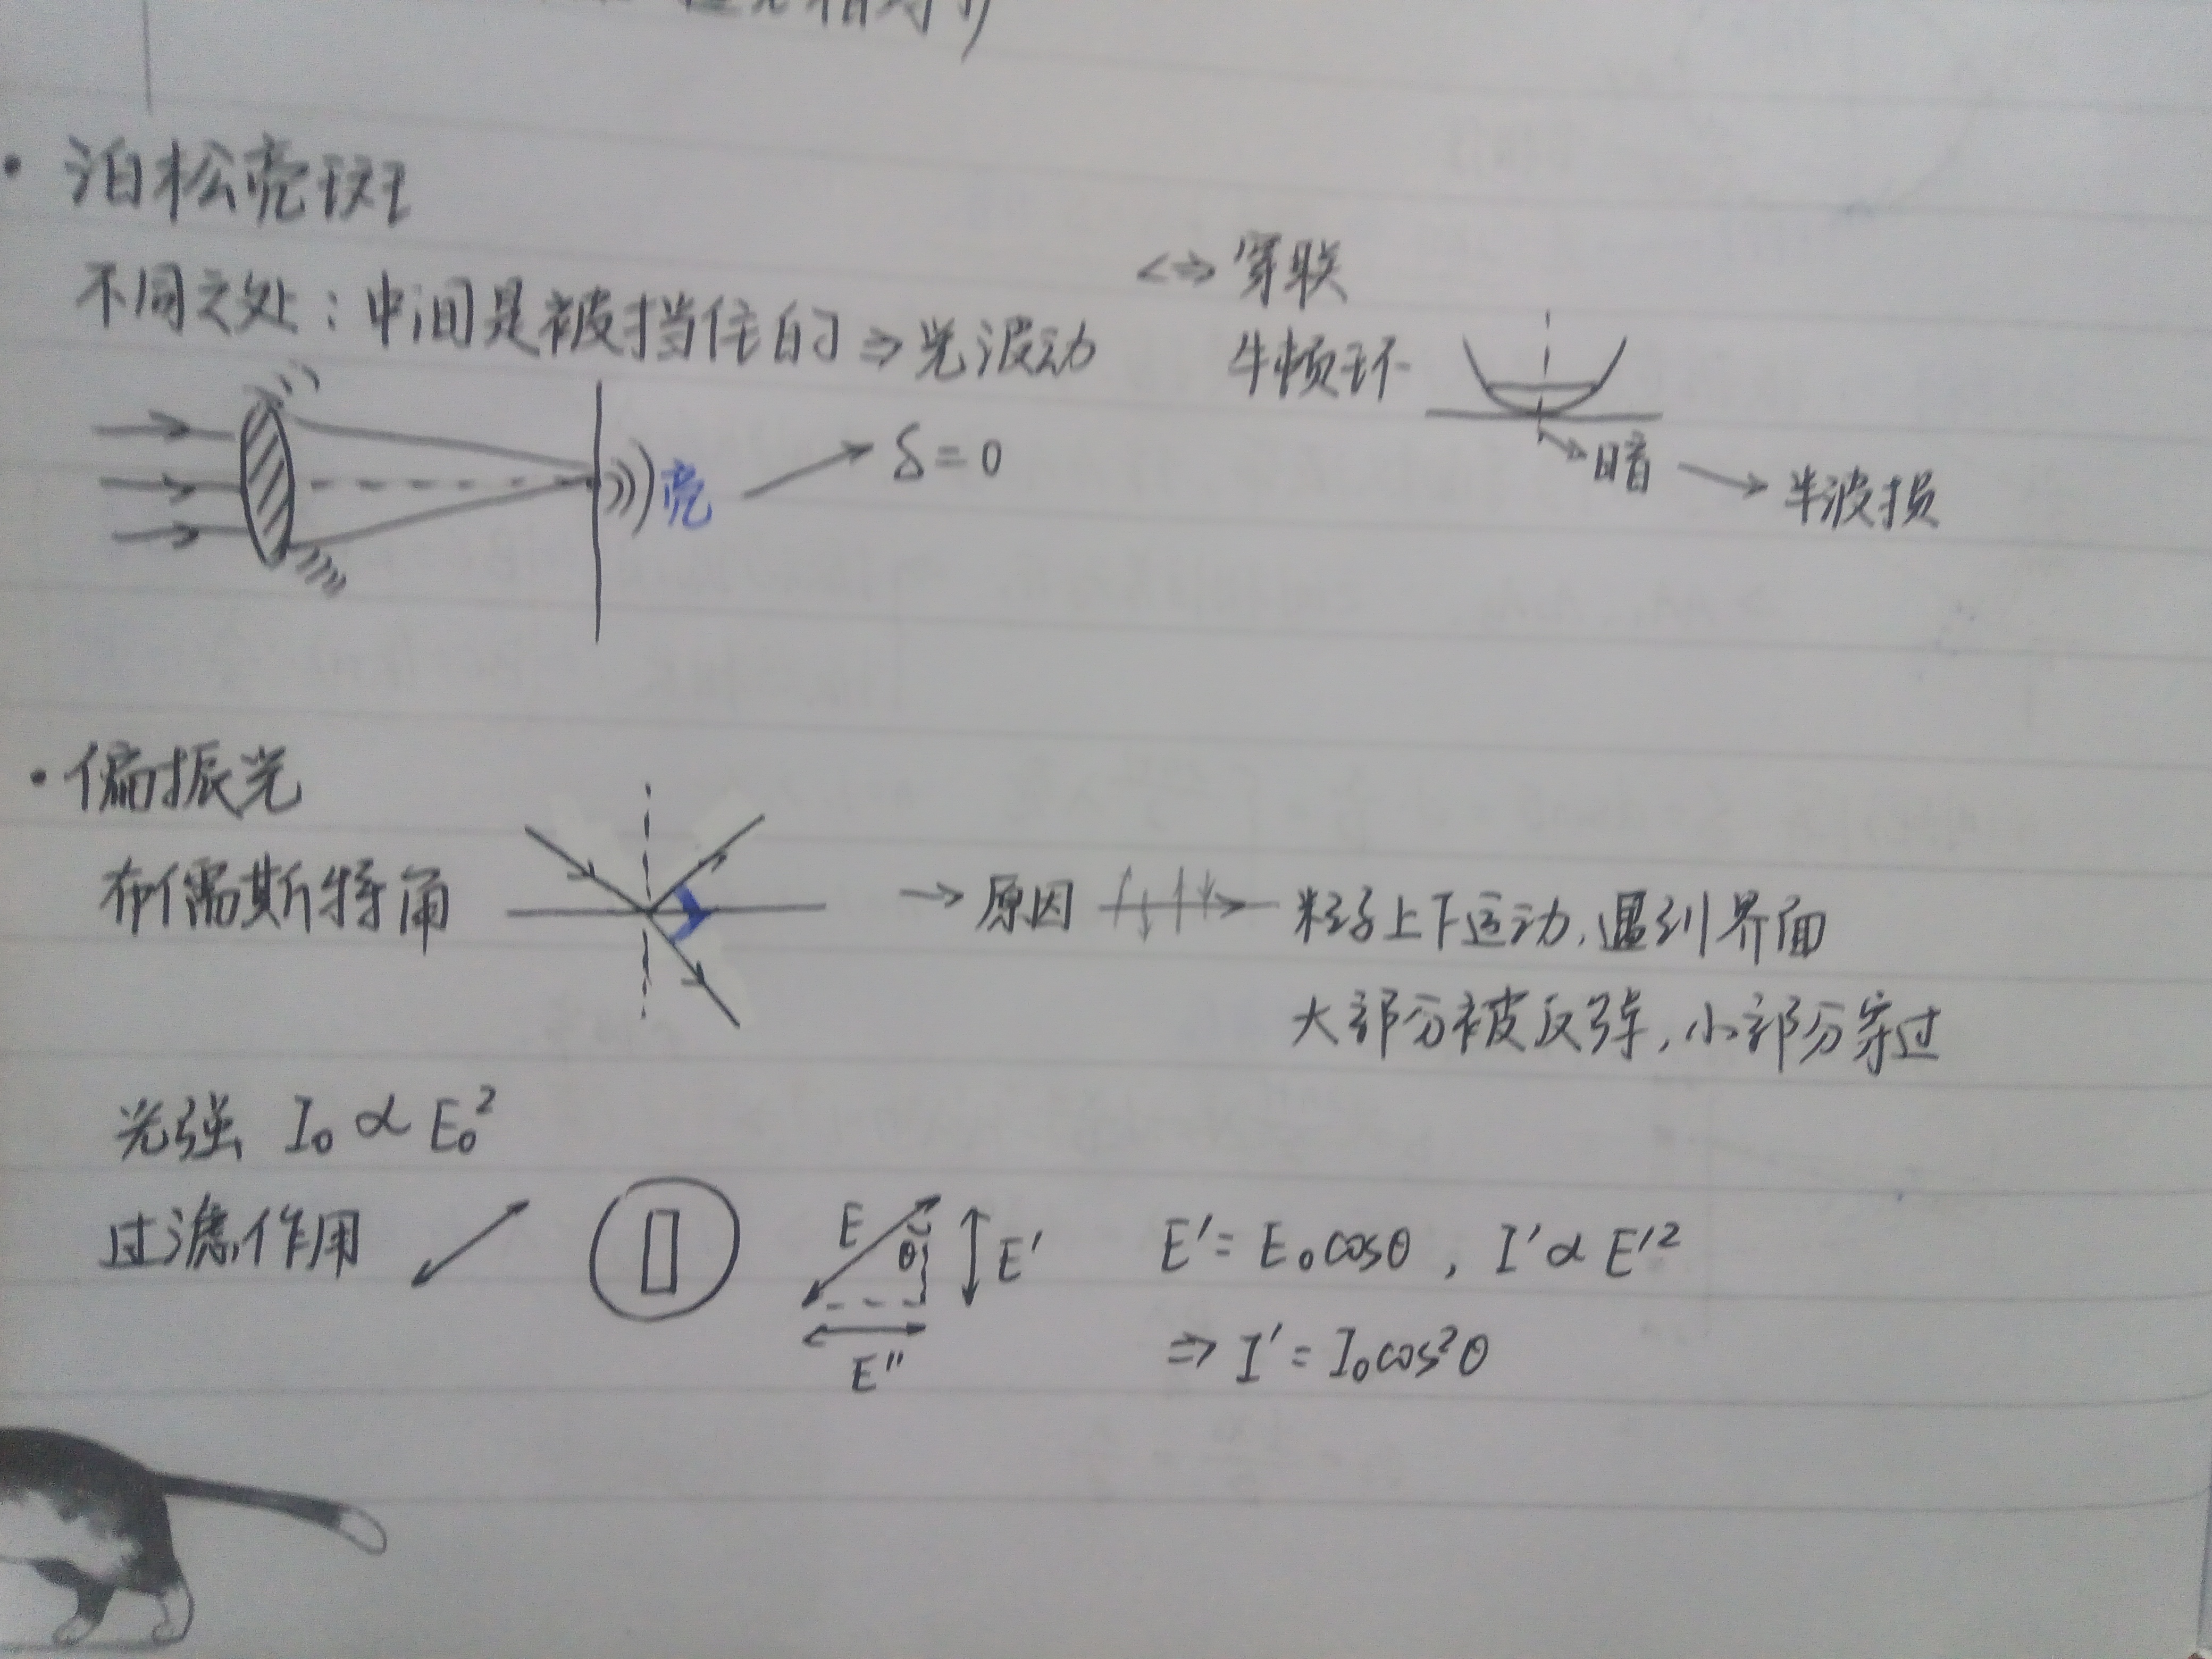 · 泊松亮斑
不同之处：中间是被挡住的 ⇒ 光波动
⇔ 穿联
牛顿环
亮 → δ = 0
暗 → 半波损
· 偏振光
布儒斯特角 → 原因 粒子上下运动，遇到界面
大部分被反弹，小部分穿过
光强 I₀ ∝ E₀²
过滤作用 E θ E' E'' E' = E₀cosθ , I' ∝ E'²
⇒ I' = I₀cos²θ